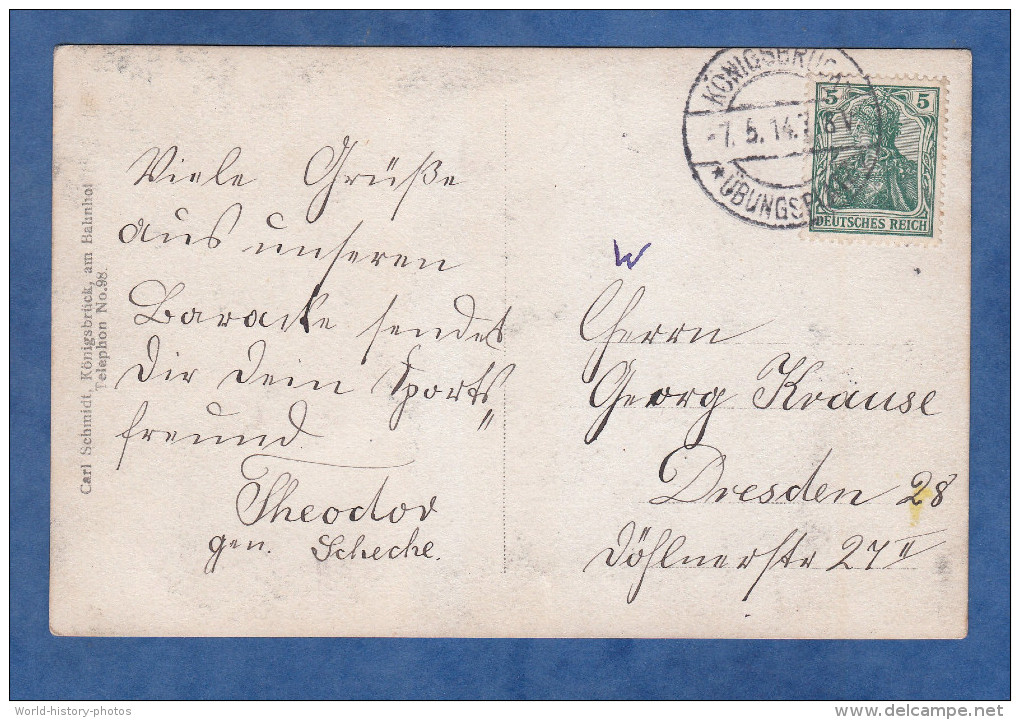 KÖNIGSBRÜCK
-7. 5. 14. 7-8 V
* ÜBUNGSPLATZ
5 5
DEUTSCHES REICH
Carl Schmidt, Königsbrück, am Bahnhof
Telephon No. 98.
Viele Grüße
aus unseren
Baracke sendet
Dir Dein Sports„
freund
Theodor
gen. Scheche.
W
Herrn
Georg Krause
Dresden 28
Döhlnerstr 27 II
World-history-photos
www.delcampe.net